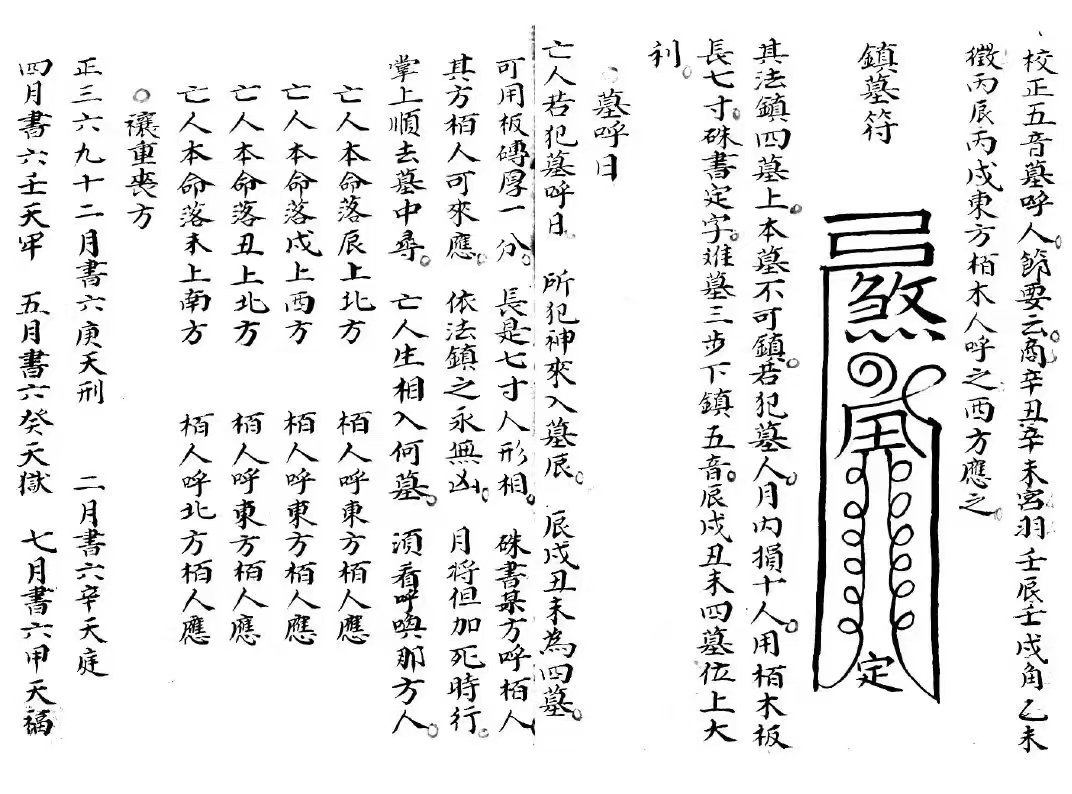 校正五音墓呼人。節要云。商辛丑辛未宮羽壬辰壬戌角乙未
徵丙辰丙戌東方栢木人呼之西方應之。
鎮墓符
煞
定
其法鎮四墓上。本墓不可鎮。若犯墓人。月内損十人。用栢木板
長七寸。硃書定字。准墓三步下鎮五音。辰戌丑未四墓位上大
利。
○墓呼日
亡人若犯墓呼日。 所犯神來入墓辰。 辰戌丑未為四墓。
可用板磚厚一分。 長是七寸人形相。 硃書某方呼栢人
其方栢人可來應。 依法鎮之永無凶。 月将但加死時行。
掌上順去墓中尋。 亡人生相入何墓。 須看呼喚那方人。
亡人本命落辰上北方 栢人呼東方栢人應
亡人本命落戌上西方 栢人呼東方栢人應
亡人本命落丑上北方 栢人呼東方栢人應
亡人本命落未上南方 栢人呼北方栢人應
○禳重喪方
正三六九十二月書六庚天刑 二月書六辛天庭
四月書六壬天牢 五月書六癸天獄 七月書六甲天福